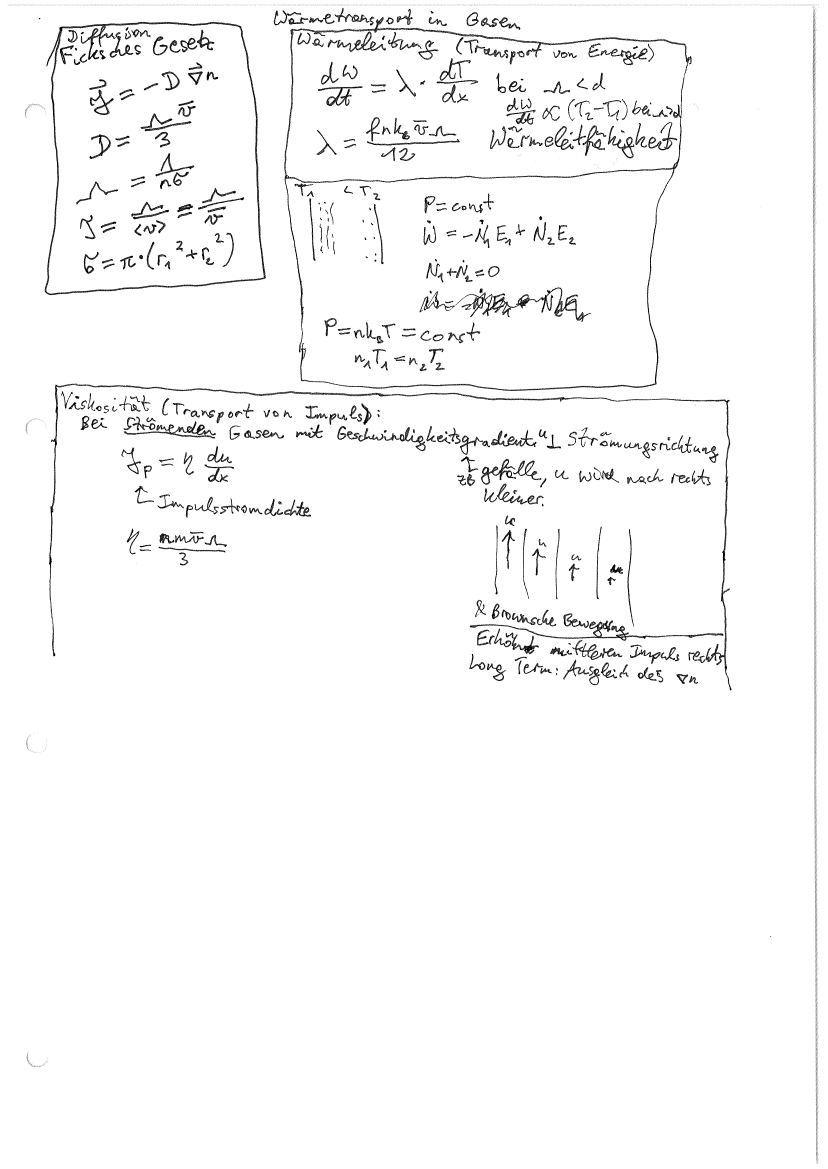 Wärmetransport in Gasen
Diffusion
Ficksches Gesetz
j⃗ = -D ∇⃗n
D = Λ v̄ / 3
Λ = 1 / nσ
τ = Λ / <v> = Λ / v̄
σ = π·(r₁² + r₂²)
Wärmeleitung (Transport von Energie)
dW/dt = λ · dT/dx bei Λ < d
dW/dt ∝ (T₂-T₁) bei Λ>d
λ = f n k_B v̄ Λ / 12 Wärmeleitfähigkeit
T₁ < T₂
P = const
Ẇ = -Ṅ₁E₁ + Ṅ₂E₂
Ṅ₁ + Ṅ₂ = 0
P = nk_BT = const
n₁T₁ = n₂T₂
Viskosität (Transport von Impuls):
Bei strömenden Gasen mit Geschwindigkeitsgradient u ⊥ Strömungsrichtung
↑
zB gefälle, u wird nach rechts
kleiner.
j_p = η du/dx
↑ Impulsstromdichte
η = n m v̄ Λ / 3
u
u
u
& Brownsche Bewegung
Erhöht mittleren Impuls rechts
Long Term: Ausgleich des ∇n